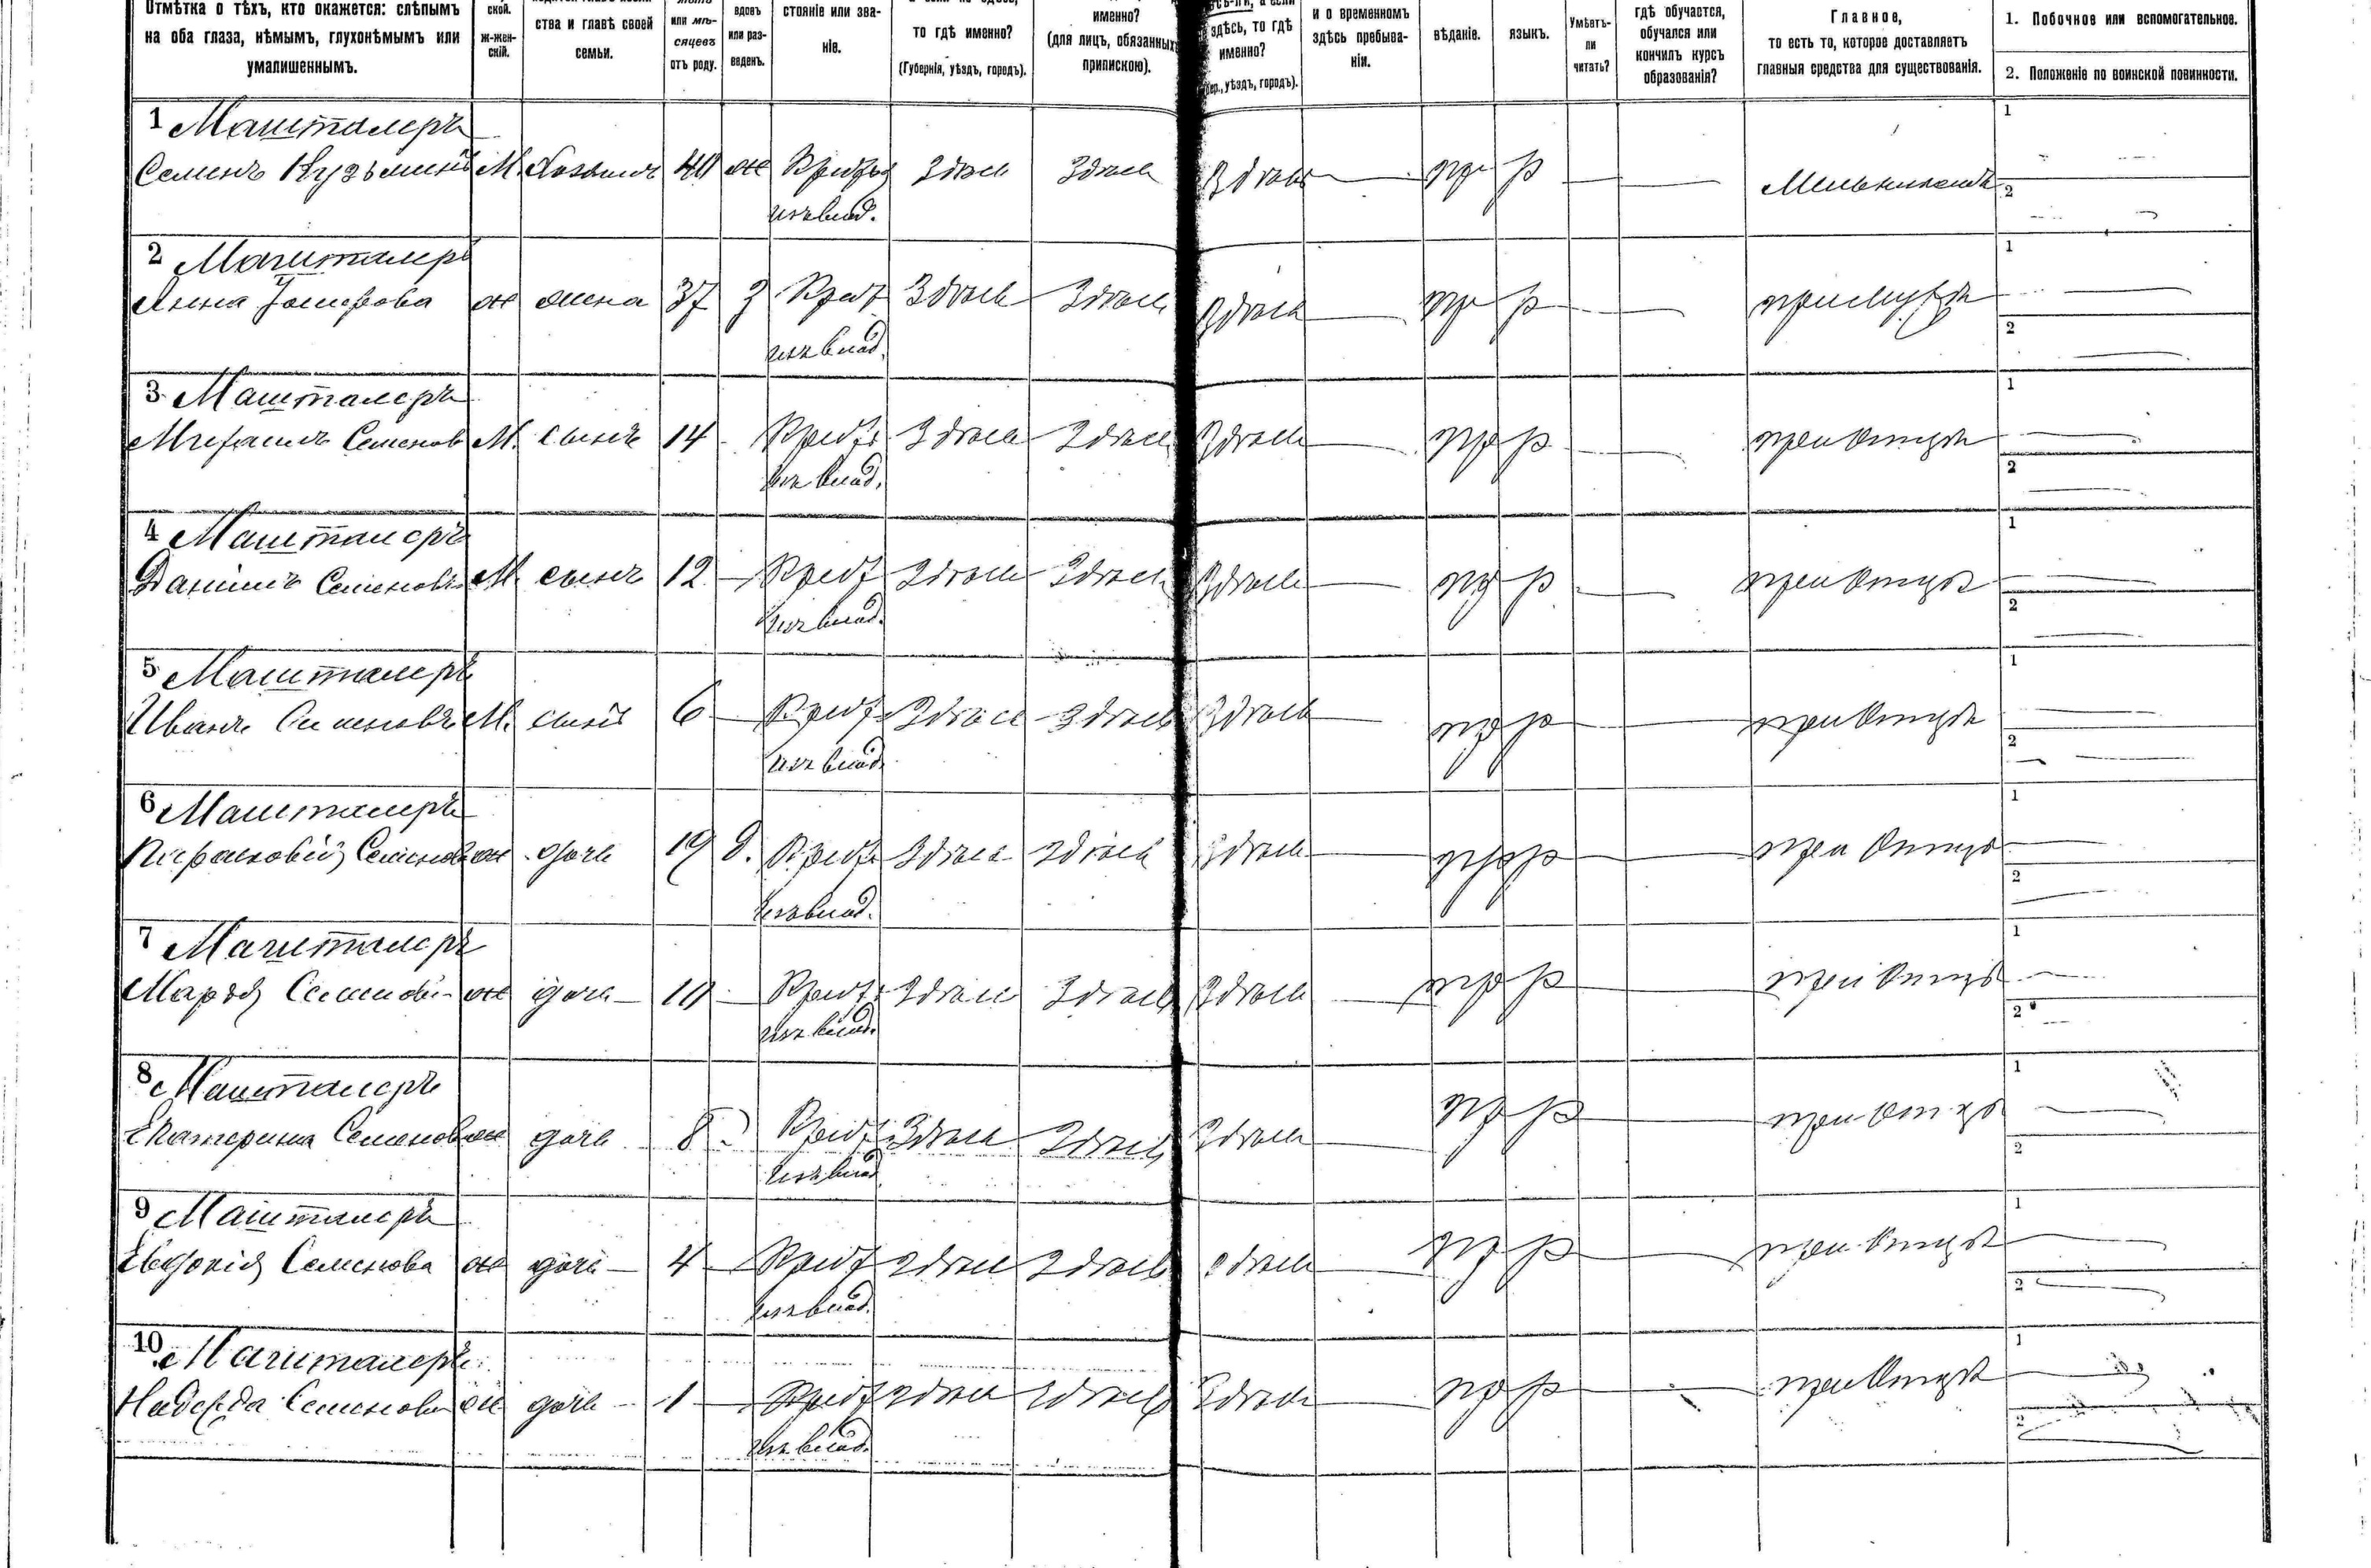 Отмѣтка о тѣхъ, кто окажется: слѣпымъ на оба глаза, нѣмымъ, глухонѣмымъ или умалишеннымъ.
ской. ж-жен-скій.
ства и главѣ своей семьи.
или мѣ-сяцевъ отъ роду.
вдовъ или раз-веденъ.
стояніе или зва-ніе.
то гдѣ именно? (Губернія, уѣздъ, городъ).
именно? (для лицъ, обязанныхъ припискою).
здѣсь, то гдѣ именно? уѣздъ, городъ).
и о временномъ здѣсь пребыва-ніи.
вѣданіе.
языкъ.
Умѣетъ-ли читать?
гдѣ обучается, обучался или кончилъ курсъ образованія?
Главное, то есть то, которое доставляетъ главныя средства для существованія.
1. Побочное или вспомогательное.
2. Положеніе по воинской повинности.
1 Машталеръ
Семенъ Кузьминъ М. Хозяинъ 40 ж Крест. Здѣсь Здѣсь Здѣсь — пр р — — 1 2
изъ влад.
2 Машталеръ
Анна ж жена 37 З Крест Здѣсь Здѣсь Здѣсь — пр р — — при мужѣ 1 2
изъ влад.
3 Машталеръ
Семенов М. сынъ 14 Крест Здѣсь Здѣсь Здѣсь — пр р — — при отцѣ 1 2
изъ влад.
4 Машталеръ
Данiилъ Семеновъ М сынъ 12 — Крест Здѣсь Здѣсь Здѣсь — пр р — — при отцѣ 1 2
изъ влад.
5 Машталеръ
Иванъ Семеновъ М. сынъ 6 — Крест Здѣсь Здѣсь Здѣсь — пр р — — при отцѣ 1 2
изъ влад.
6 Машталеръ
Семенов ж дочь 19 д. Крест Здѣсь Здѣсь Здѣсь — пр р — — при отцѣ 1 2
изъ влад.
7 Машталеръ
Марья Семенов ж дочь — 10 — Крест Здѣсь Здѣсь Здѣсь — пр р — — при отцѣ 1 2
изъ влад.
8 Машталеръ
Екатерина Семенов ж дочь 8 Крест Здѣсь Здѣсь Здѣсь — пр р — — при отцѣ 1 2
изъ влад
9 Машталеръ
Евдокія Семенова ж дочь — 4 — Крест Здѣсь Здѣсь Здѣсь — пр р — — при отцѣ 1 2
изъ влад.
10 Машталеръ
Надежда Семенова ж дочь — 1 — Крест Здѣсь Здѣсь Здѣсь — пр р — — при отцѣ 1 2
изъ влад.